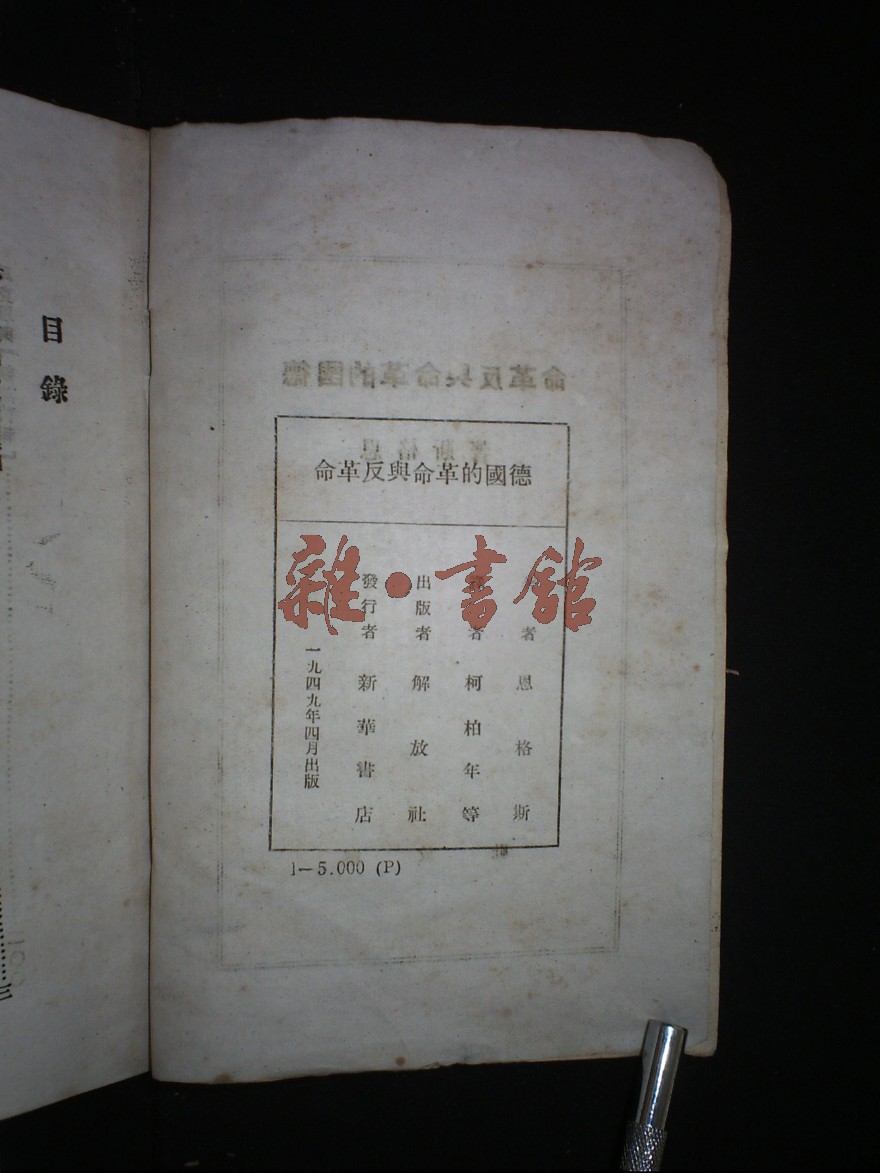 德國的革命與反革命
者 恩格斯
者 柯柏年等
出版者 解放社
發行者 新華書店
一九四九年四月出版
1—5.000 (P)
目錄
雜·書館
德國的革命與反革命